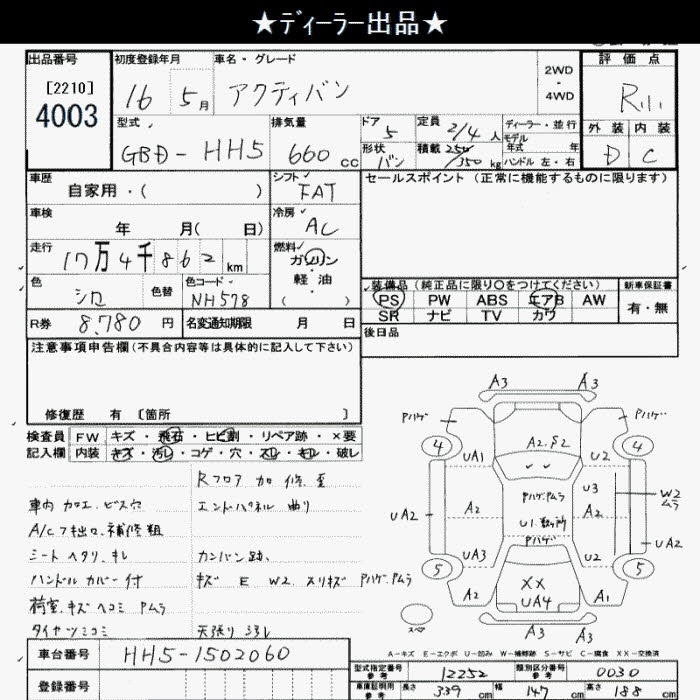 ★ディーラー出品★
出品番号 初度登録年月 車名・グレード 評価点
[2210]
4003
16 5月 アクティバン
2WD
・
4WD
外装 内装
D C
型式 排気量 ドア 定員 ディーラー・並行
GBD-HH5 660cc 5 2/4人 モデル年式 年
形状 バン 積載 250/350kg ハンドル 左・右
車歴 自家用・( ) シフト FAT
セールスポイント(正常に機能するものに限ります)
車検 年 月( 日) 冷房 AC
走行 17万4千862km 燃料 ガソリン・軽油( )
色 シロ 色替 色コード NH578
装備品(純正品に限り○をつけてください) 新車保証書
PS PW ABS エアB AW 有・無
SR ナビ TV カワ
R券 8,780円 名変通知期限 月 日
後日品
注意事項申告欄(不具合内容等は具体的に記入して下さい)
修復歴 有 〔箇所 〕
検査員 FW キズ・飛石・ヒビ割・リペア跡・×要
記入欄 内装 キズ・汚レ・コゲ・穴・スレ・キレ・破レ
Rフロア 加修歪
車内 加工.ビス穴 エンドパネル 曲り
A/C 補修粗
シート ヘタリ.キレ カンバン跡.
ハンドル カバー付 キズ E W2 スリキズ Pハゲ.Pムラ
荷室.キズ ヘコミ Pムラ
タイヤツミコミ 天張り
A3 A3
Pハゲ Pハゲ
4 4
A2.S2
UA1 U2
Pハゲ.Pムラ U3 W2
ムラ
UA2 A2 A2
U1.数ヶ所
Pハゲ UA2
UA3 U2
5 5
A2 XX A1
UA4
スペア
A3 A3
A-キズ E-エクボ U-凹み W-補修跡 S-サビ C-腐食 XX-交換済
車台番号 HH5-1502060
型式指定番号 参考 12252 類別区分番号 参考 0030
登録番号
車庫証明用 参考 長さ 339cm 幅 147cm 高さ 188cm